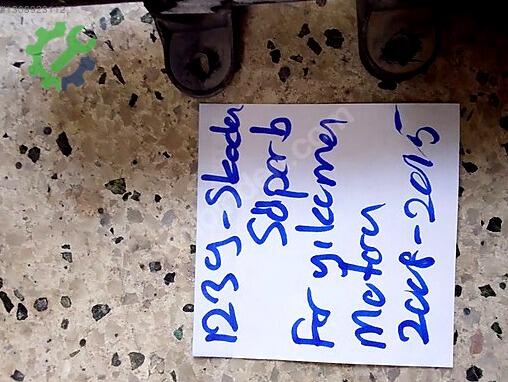 1239-Skoda
Superb
Far yıkama
Motoru
2008-2015